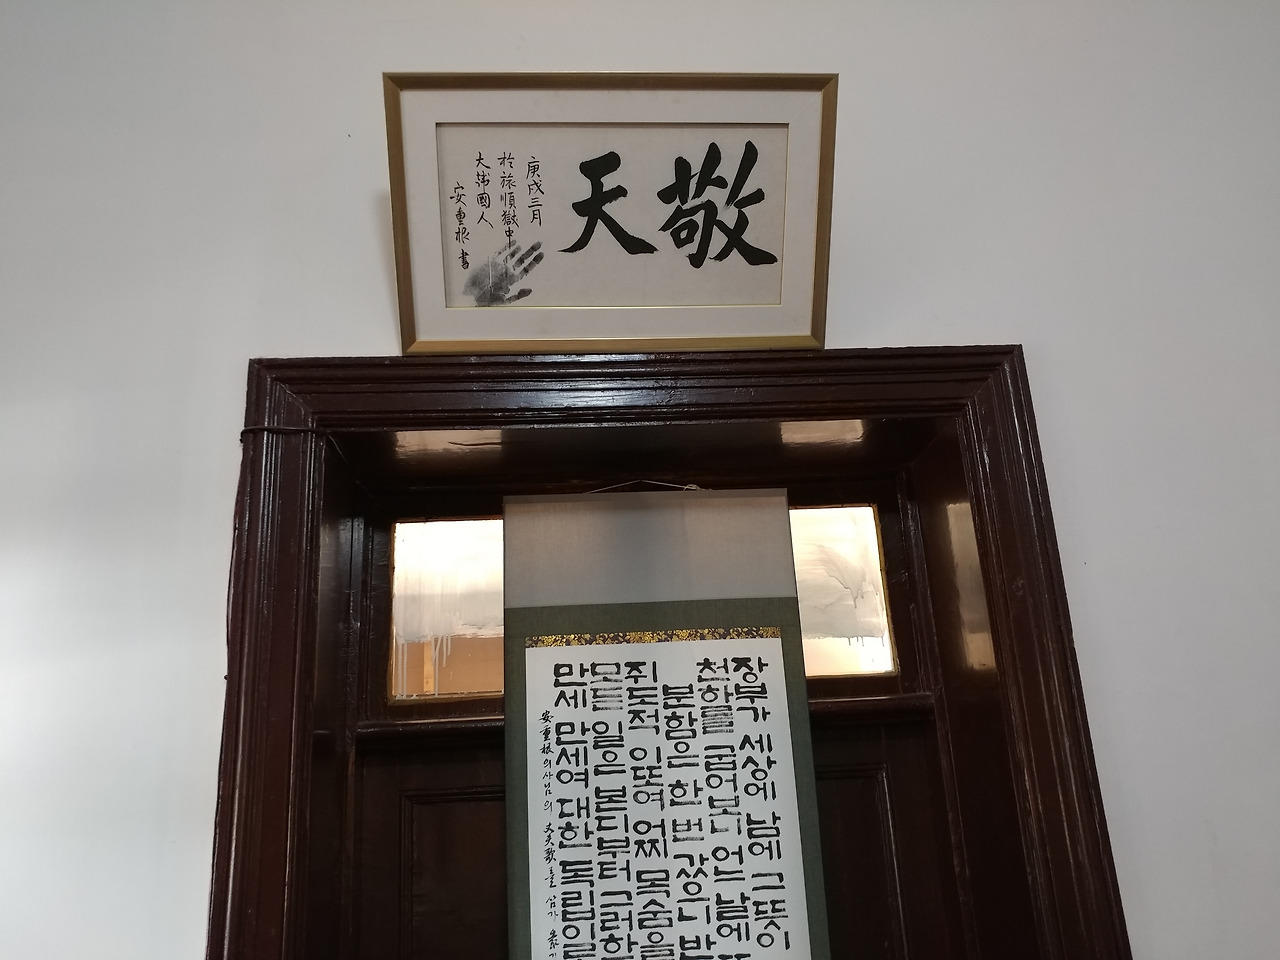 敬天
庚戌三月
於旅順獄中
大韓國人
安重根 書
장부가 세상에 남에 그 뜻이
천하를 굽어보니 어느 날에
분함은 한번 갔으니 반
쥐도적 이또여 어찌 목숨을
모든 일은 본디부터 그러한
만세 만세여 대한 독립이
安重根의사님의 丈夫歌를 삼가